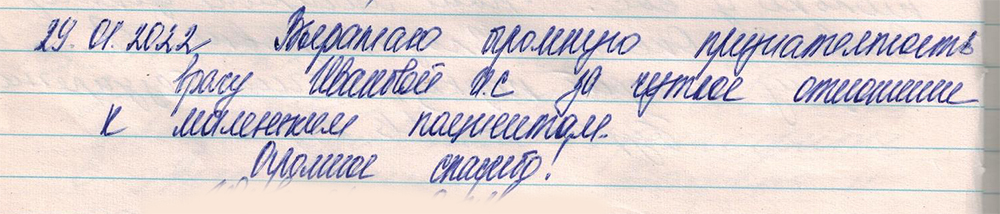 29.01.2022 Выражаю огромную признательность
врачу Ивановой И.С за чуткое отношение
к маленьким пациентам.
Огромное спасибо!